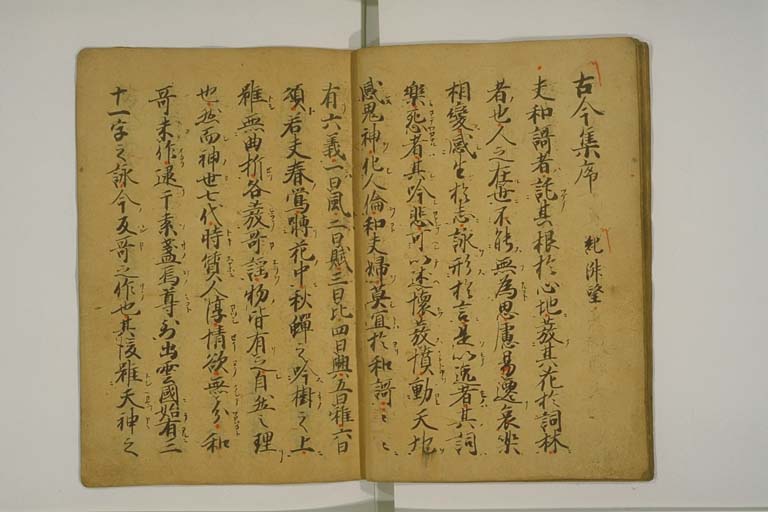 古今集序
紀淑望
夫和謌者託其根於心地發其花於詞林
者也人之在世不能無為思慮易遷哀樂
相變感生於志詠形於言是以逸者其詞
樂怨者其吟悲可以述懐發憤動天地
感鬼神化人倫和夫婦莫宜於和謌〻〻
有六義一曰風二曰賦三曰比四曰興五曰雅六曰
頌若夫春鶯囀花中秋蟬之吟樹之上
雖無曲折各發哥謡物皆有之自然之理
也然而神世七代時質人淳情欲無分和
哥未作逮于素盞烏尊到出雲國始有三
十一字之詠今反哥之作也其後雖天神之